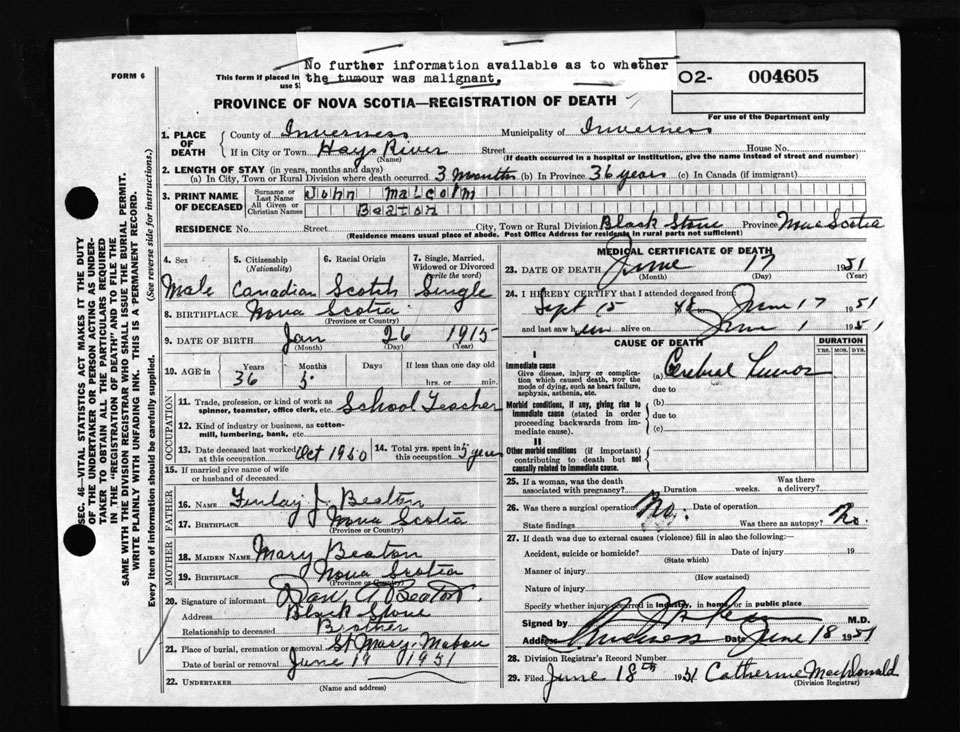 No further information available as to whether
the tumour was malignant.
FORM 6
This form if placed in
use 5
O2- 004605
For use of the Department only
PROVINCE OF NOVA SCOTIA—REGISTRATION OF DEATH
1. PLACE OF DEATH
County of Inverness Municipality of Inverness
If in City or Town Hays River Street House No.
(Name) (If death occurred in a hospital or institution, give the name instead of street and number)
2. LENGTH OF STAY (in years, months and days)
(a) In City, Town or Rural Division where death occurred 3 Months (b) In Province 36 years (c) In Canada (if immigrant)
3. PRINT NAME OF DECEASED
Surname or Last Name John Malcolm
All Given or Christian Names Beaton
RESIDENCE No. Street City, Town or Rural Division Black Stone Province Nova Scotia
(Residence means usual place of abode. Post Office Address for residents in rural parts not sufficient)
4. Sex Male
5. Citizenship (Nationality) Canadian
6. Racial Origin Scotch
7. Single, Married, Widowed or Divorced (write the word) Single
8. BIRTHPLACE Nova Scotia
(Province or Country)
9. DATE OF BIRTH Jan 26 1915
(Month) (Day) (Year)
10. AGE in Years 36 Months 5 Days If less than one day old
hrs. or min.
OCCUPATION
11. Trade, profession, or kind of work as spinner, teamster, office clerk, etc. School Teacher
12. Kind of industry or business, as cotton-mill, lumbering, bank, etc.
13. Date deceased last worked at this occupation Oct 1950
14. Total yrs. spent in this occupation 5 years
15. If married give name of wife or husband of deceased
FATHER
16. NAME Finlay J. Beaton
17. BIRTHPLACE Nova Scotia
(Province or Country)
MOTHER
18. MAIDEN NAME Mary Beaton
19. BIRTHPLACE Nova Scotia
(Province or Country)
20. Signature of informant Dan A Beaton
Address Black Stone
Relationship to deceased Brother
21. Place of burial, cremation or removal St Mary, Mabou
Date of burial or removal June 19 1951
22. UNDERTAKER
(Name and address)
MEDICAL CERTIFICATE OF DEATH
23. DATE OF DEATH June 17 1951
(Month) (Day)
24. I HEREBY CERTIFY that I attended deceased from
Sept 15 June 17 1951
and last saw him alive on June 1 1951
CAUSE OF DEATH
DURATION
YRS. MOS. DYS.
I
Immediate cause
Give disease, injury or complication which caused death, NOT the mode of dying, such as heart failure, asphyxia, asthenia, etc.
(a) Cerebral Tumor
due to
Morbid conditions, if any, giving rise to immediate cause (stated in order proceeding backwards from immediate cause).
(b)
due to
(c)
II
Other morbid conditions (if important) contributing to death but not causally related to immediate cause.
25. If a woman, was the death associated with pregnancy? Duration weeks. Was there a delivery?
26. Was there a surgical operation? No. Date of operation
State findings Was there an autopsy? No.
27. If death was due to external causes (violence) fill in also the following:—
Accident, suicide or homicide? Date of injury 19
(State which)
Manner of injury
(How sustained)
Nature of injury
Specify whether injury occurred in industry, in home, or in public place
Signed by M.D.
Address Inverness Date June 18 1951
28. Division Registrar's Record Number
29. Filed June 18th 1951 Catherine MacDonald
(Division Registrar)
SEC. 46—VITAL STATISTICS ACT MAKES IT THE DUTY
OF THE UNDERTAKER OR PERSON ACTING AS UNDERTAKER TO OBTAIN ALL THE PARTICULARS REQUIRED
IN THE "REGISTRATION OF DEATH" AND TO FILE THE
SAME WITH THE DIVISION REGISTRAR WHO SHALL ISSUE THE BURIAL PERMIT.
WRITE PLAINLY WITH UNFADING INK. THIS IS A PERMANENT RECORD.
Every item of information should be carefully supplied. (See reverse side for instructions.)